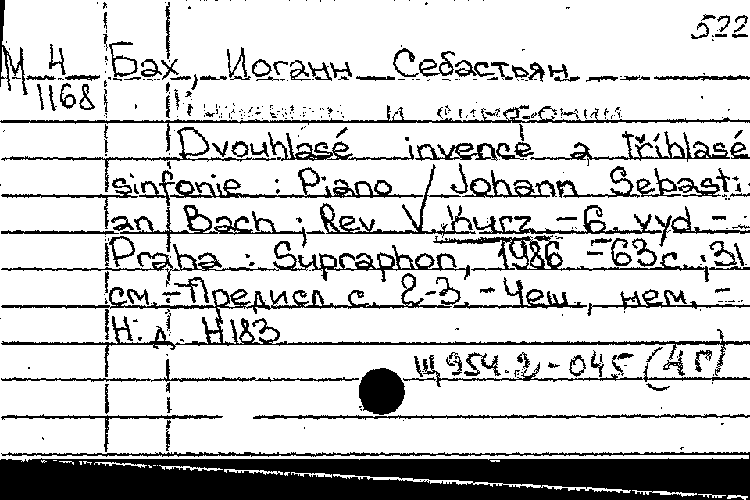 522
М 4 Бах, Иоганн Себастьян
1168
и симфонии
Dvouhlasé invence a tříhlasé
sinfonie : Piano / Johann Sebasti-
an Bach ; Rev. V. Kurz. – 6. vyd. –
Praha : Supraphon, 1986. – 63 с. ; 31
см. – Предисл. с. 2-3. – Чеш., нем. –
Н. д. H183
Щ954.2-045 (4Г)